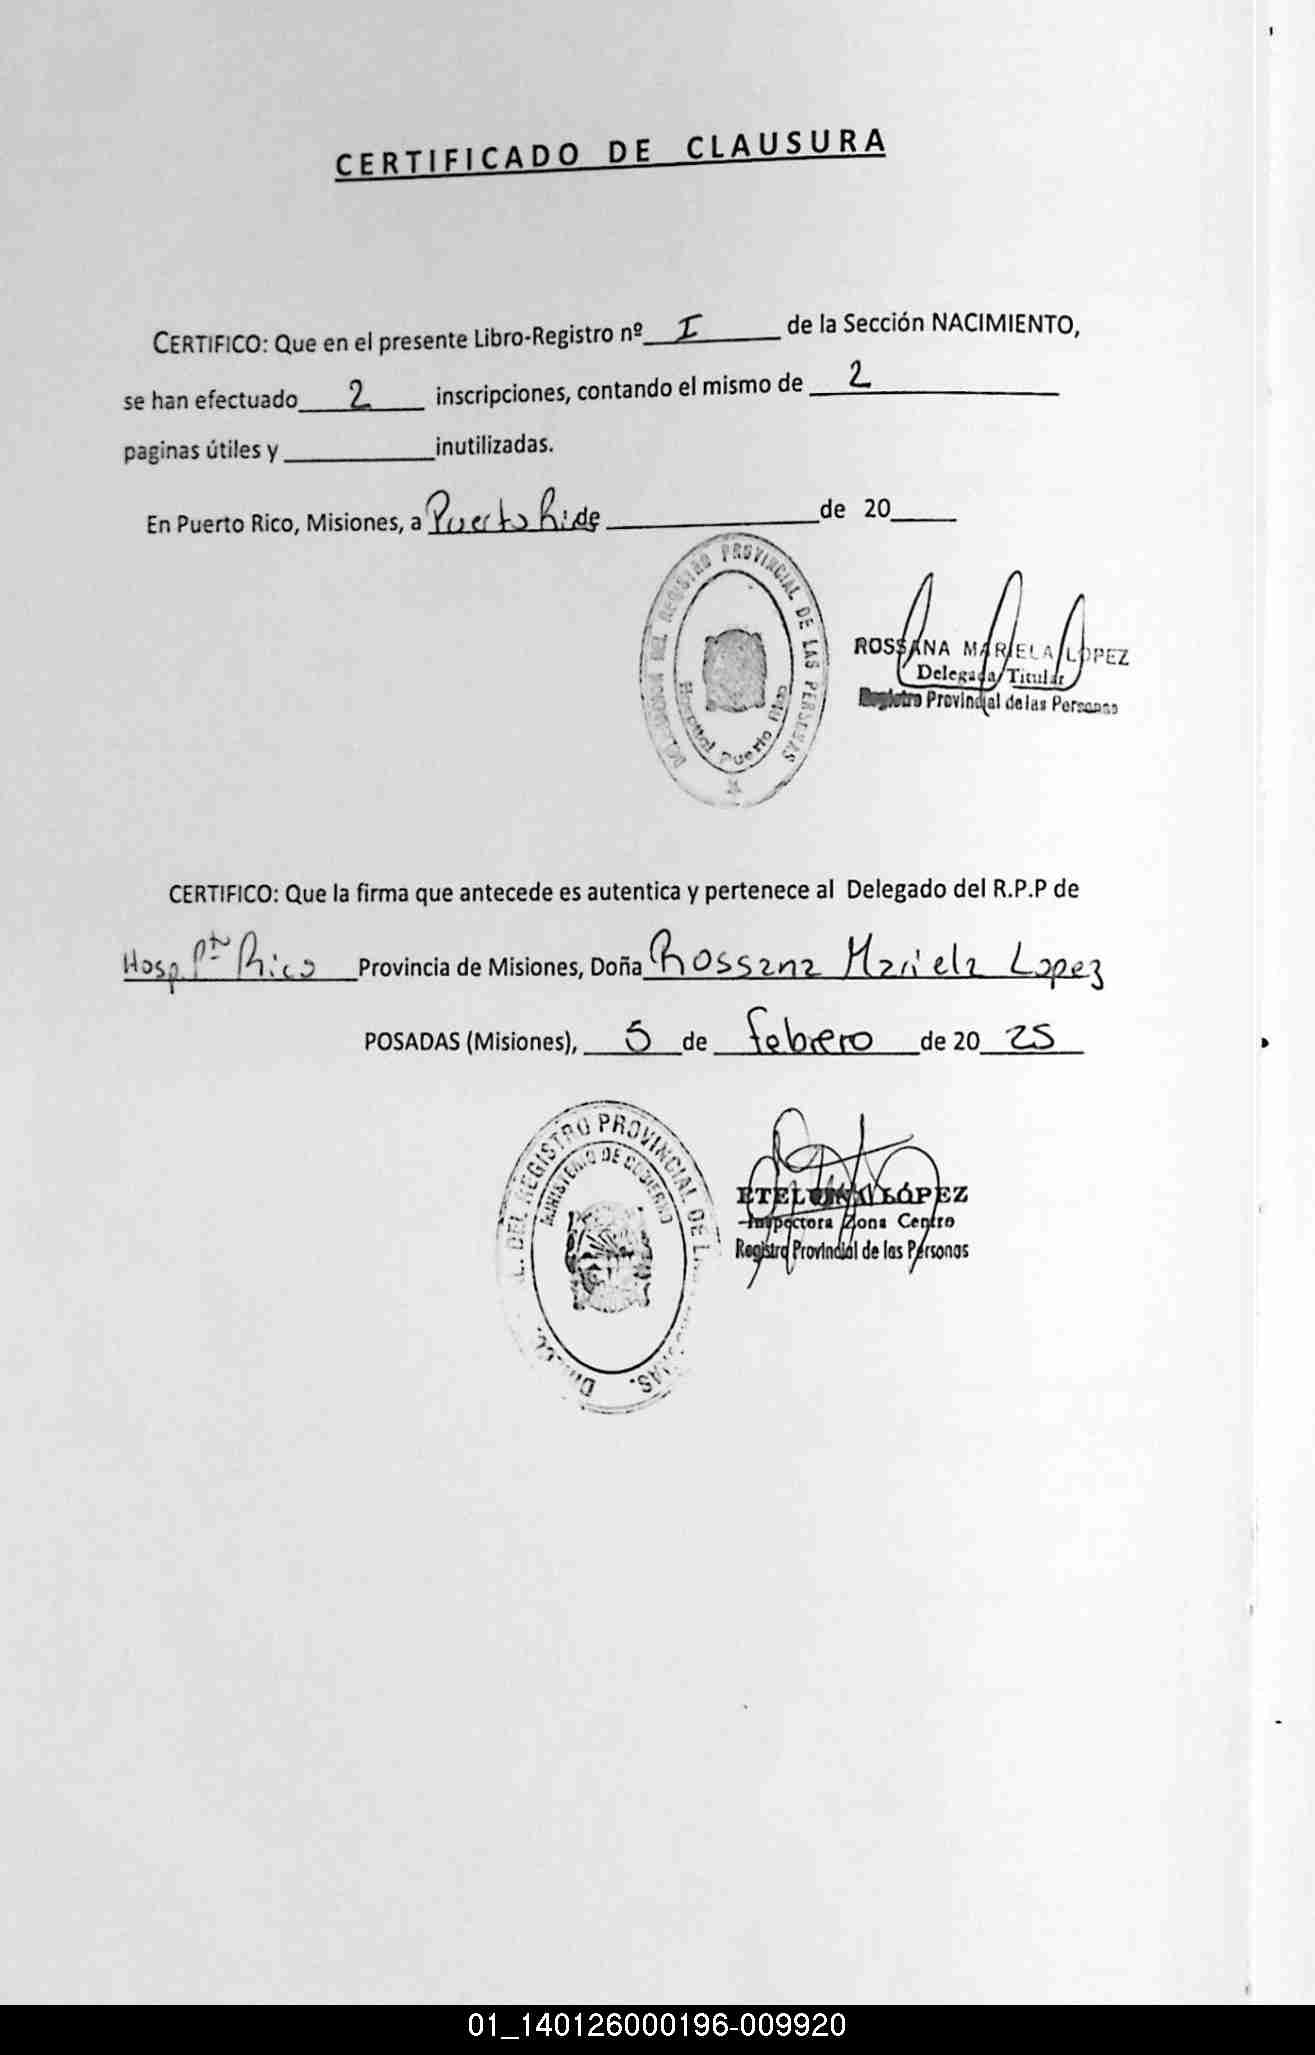 CERTIFICADO DE CLAUSURA
CERTIFICO: Que en el presente Libro-Registro nº I de la Sección NACIMIENTO,
se han efectuado 2 inscripciones, contando el mismo de 2
paginas útiles y inutilizadas.
En Puerto Rico, Misiones, a Puerto Ri de de 20
REGISTRO PROVINCIAL DE LAS PERSONAS
Hospital Puerto Rico
ROSSANA MARIELA LOPEZ
Delegada Titular
Registro Provincial de las Personas
CERTIFICO: Que la firma que antecede es autentica y pertenece al Delegado del R.P.P de
Hosp. Pto Rico Provincia de Misiones, Doña Rossana Mariela Lopez
POSADAS (Misiones), 5 de febrero de 20 25
DEL REGISTRO PROVINCIAL DE
MINISTERIO DE GOBIERNO
LÓPEZ
Inspectora Zona Centro
Registro Provincial de las Personas
01_140126000196-009920